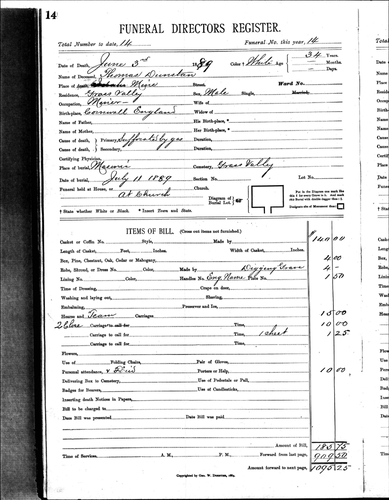 14
FUNERAL DIRECTORS REGISTER.
Total Number to date, 14 Funeral No. this year, 14
Date of Death, June 3rd 1889 Color † White Age 34 Years.
— Months.
— Days.
Name of Deceased, Thomas Dunstan
Place of death, Mine Street, Ward No.
Residence, Grass Valley Sex, Male Single, Married,
Occupation, Miner Wife of
Birthplace, Cornwall England Widow of
Name of Father, His Birth-place, *
Name of Mother, Her Birth-place, *
Cause of death, Primary, Suffocated by gas Duration,
Cause of death, Secondary, Duration,
Certifying Physician,
Place of burial, Masonic Cemetery, Grass Valley
Date of burial, July 11 1889 Section No.
Funeral held at House, or At Church Church,
Diagram of Burial Lot
† State whether White or Black. * Insert Town and State.
ITEMS OF BILL. (Cross out items not furnished.)
Casket or Coffin No. Style, Made by $140 00
Length of Casket, Feet, Inches. Width of Casket, Inches.
Box, Pine, Chestnut, Oak, Cedar or Mahogany, 4 00
Robe, Shroud, or Dress No. Color, Made by Digging Grave 4 —
Lining No. Color, Handles No. Eng. Name Plate No. 1 50
Time of Dressing, Crape on door,
Washing and laying out, Shaving,
Embalming, Preserver and Ice,
Hearse and Team Carriages. 15 00
Carriage to call for Time, 10 00
Carriage to call for 1 sheet Time, 1 25
Carriage to call for Time,
Flowers,
Use of Folding Chairs, Pair of Gloves,
Personal attendance, Porters or Help, 10 00
Delivering Box to Cemetery, Use of Pedestals or Pall,
Badges for Bearers, Use of Candlesticks,
Inserting death Notices in Papers,
Bill to be charged to
Date Bill was presented Date Bill was paid
Amount of Bill, 185 75
Time of Services, A. M., P. M. Forward from last page, 909 50
Amount forward to next page, 1095 25